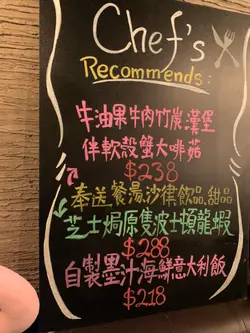 Chef's
Recommends:
牛油果牛肉竹炭漢堡
伴軟殼蟹大啡菇
$238
奉送餐湯,沙律,飲品,甜品
芝士焗原隻波士頓龍蝦
$288
自製墨汁海鮮意大利飯
$218